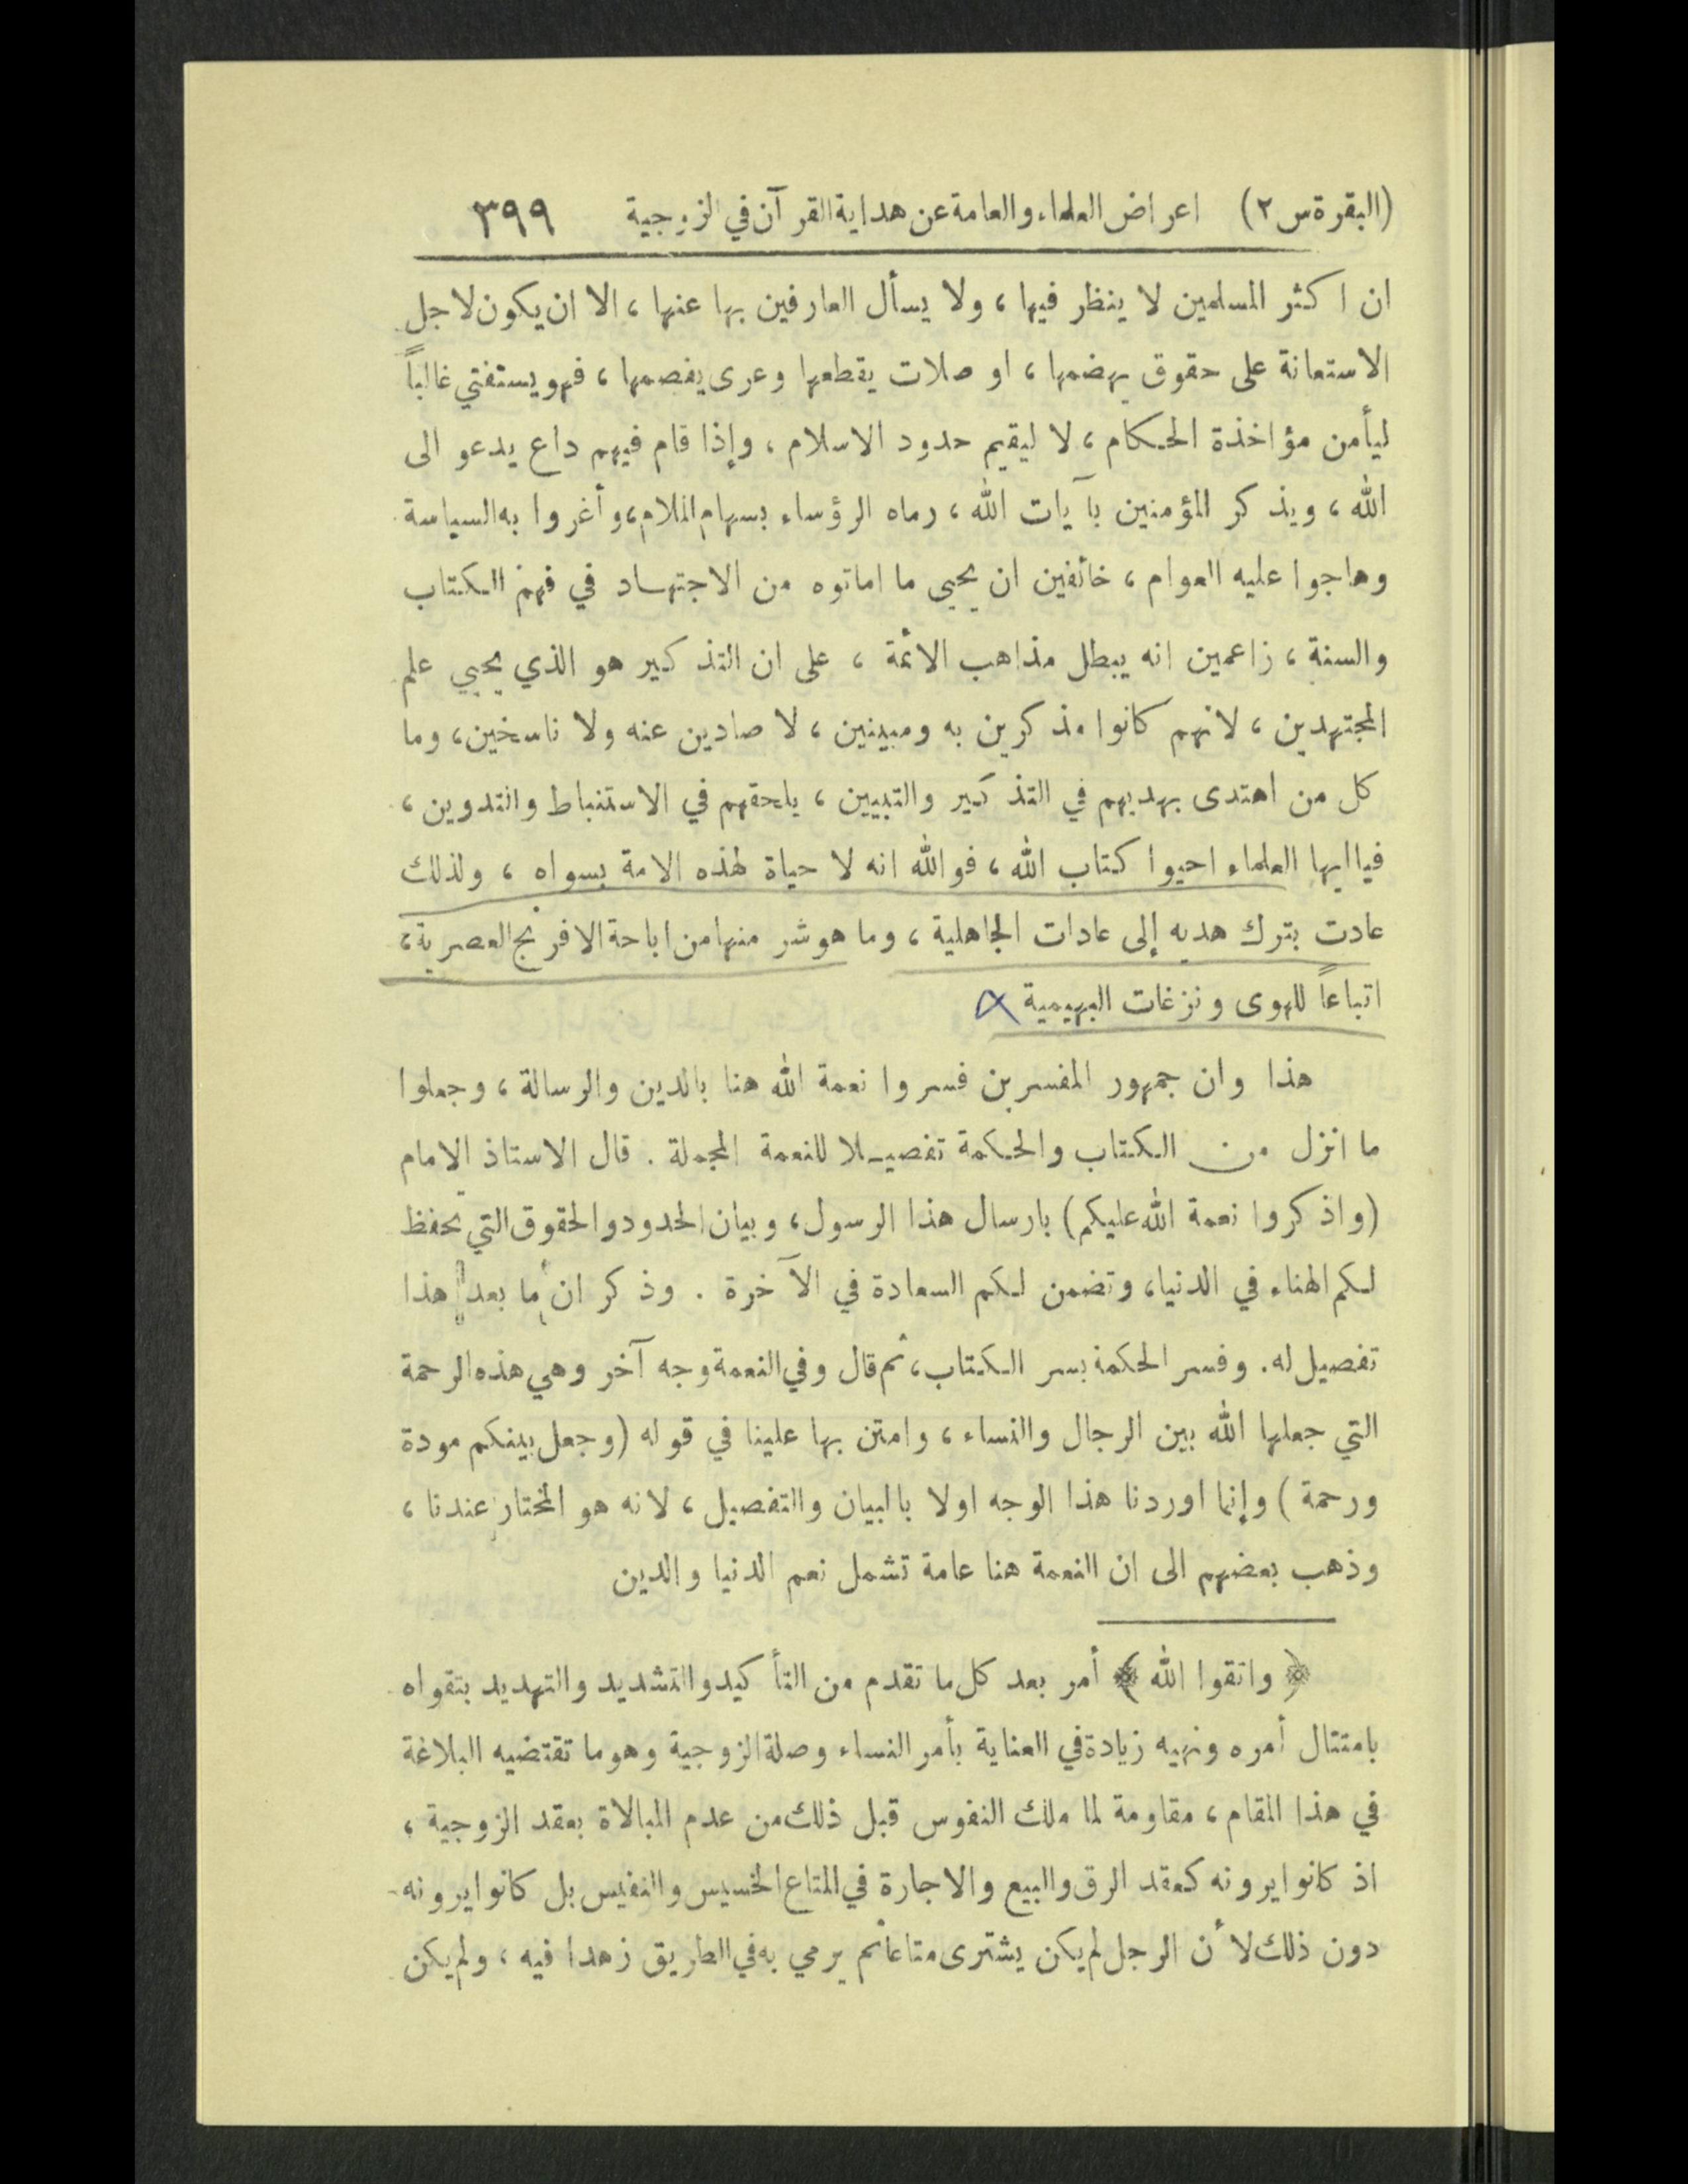 (البقرة س ٢) اعراض العلماء والعامة عن هداية القرآن في الزوجية ٣٩٩
ان اكثر المسلمين لا ينظر فيها ، ولا يسأل العارفين بها عنها ، الا ان يكون لاجل
الاستعانة على حقوق يهضمها ، او صلات يقطعها وعرى يفصمها ، فهو يستفتي غالباً
ليأمن مؤاخذة الحكام ، لا ليقيم حدود الاسلام ، وإذا قام فيهم داع يدعو الى
الله ، ويذكر المؤمنين بآيات الله ، رماه الرؤساء بسهام الملام ، وأغروا به السياسة
وهاجوا عليه العوام ، خائفين ان يحيي ما اماتوه من الاجتهاد في فهم الكتاب
والسنة ، زاعمين انه يبطل مذاهب الائمة ، على ان التذكير هو الذي يحيي علم
المجتهدين ، لانهم كانوا مذكرين به ومبينين ، لا صادين عنه ولا ناسخين ، وما
كل من اهتدى بهديهم في التذكير والتبيين ، يلحقهم في الاستنباط والتدوين ،
فيا ايها العلماء احيوا كتاب الله ، فوالله انه لا حياة لهذه الامة بسواه ، ولذلك
عادت بترك هديه إلى عادات الجاهلية ، وما هو شر منها من اباحة الافرنج العصرية ،
اتباعاً للهوى ونزغات البهيمية
هذا وان جمهور المفسرين فسروا نعمة الله هنا بالدين والرسالة ، وجعلوا
ما انزل من الكتاب والحكمة تفصيلا للنعمة المجملة . قال الاستاذ الامام
(واذكروا نعمة الله عليكم) بارسال هذا الرسول ، وبيان الحدود والحقوق التي تحفظ
لكم الهناء في الدنيا ، وتضمن لكم السعادة في الآخرة . وذكر ان ما بعد هذا
تفصيل له. وفسر الحكمة بسر الكتاب ، ثم قال وفي النعمة وجه آخر وهي هذه الرحمة
التي جعلها الله بين الرجال والنساء ، وامتن بها علينا في قوله (وجعل بينكم مودة
ورحمة ) وإنما اوردنا هذا الوجه اولا بالبيان والتفصيل ، لانه هو المختار عندنا ،
وذهب بعضهم الى ان النعمة هنا عامة تشمل نعم الدنيا والدين
﴿ واتقوا الله ﴾ أمر بعد كل ما تقدم من التأكيد والتشديد والتهديد بتقواه
بامتثال أمره ونهيه زيادة في العناية بأمر النساء وصلة الزوجية وهو ما تقتضيه البلاغة
في هذا المقام ، مقاومة لما ملك النفوس قبل ذلك من عدم المبالاة بعقد الزوجية ،
اذ كانوا يرونه كعقد الرق والبيع والاجارة في المتاع الخسيس والنفيس بل كانوا يرونه
دون ذلك لأن الرجل لم يكن يشترى متاعا ثم يرمي به في الطريق زهدا فيه ، ولم يكن